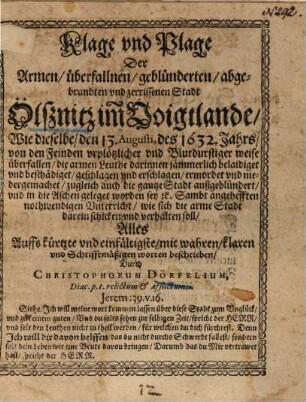 No 292.
Klage vnd Plage
Der
Armen/ überfallnen/ geblünderten/ abge-
brandten vnd zerrissenen Stadt
Ölßnitz im Voigtlande/
Wie dieselbe/ den 13. Augusti, des 1632. Jahrs/
von den Feinden vrplötzlicher vnd Blutdurstiger weise
überfallen/ die armen Leuthe darinnen jämmerlich belaidiget
vnd beschädiget/ geschlagen vnd erschlagen/ ermordet vnd nie-
dergemachet/ zugleich auch die gantze Stadt außgeblündert/
vnd in die Aschen geleget worden sey ꝛc. Sambt angehefften
nothwendigen Vnterricht/ wie sich die arme Stadt
darein schicken vnd verhalten soll/
Alles
Auffs kürtzte vnd einfältigste/ mit wahren/ klaren
vnd Schrifftmäßigen worten beschrieben/
Durch
CHRISTOPHORUM DÖRFELIUM,
Diac. p.t. relictum & afflictum.
Jerem: 39. v. 16.
Siehe/ Ich will meine wort kommen lassen über diese Stadt zum Vnglück/
vnd zu keinem guten/ Vnd du solts sehen zur selbigen Zeit/ spricht der HERR/
vnd solt den Leuthen nicht zu theil werden/ für welchen du dich fürchtest. Denn
Ich will dir davon helffen/ das du nicht durchs Schwerdt fallest/ sondern
solt dein leben wie eine Beute davon bringen/ Darumb das du Mir vertrawet
hast/ spricht der HERR.
12